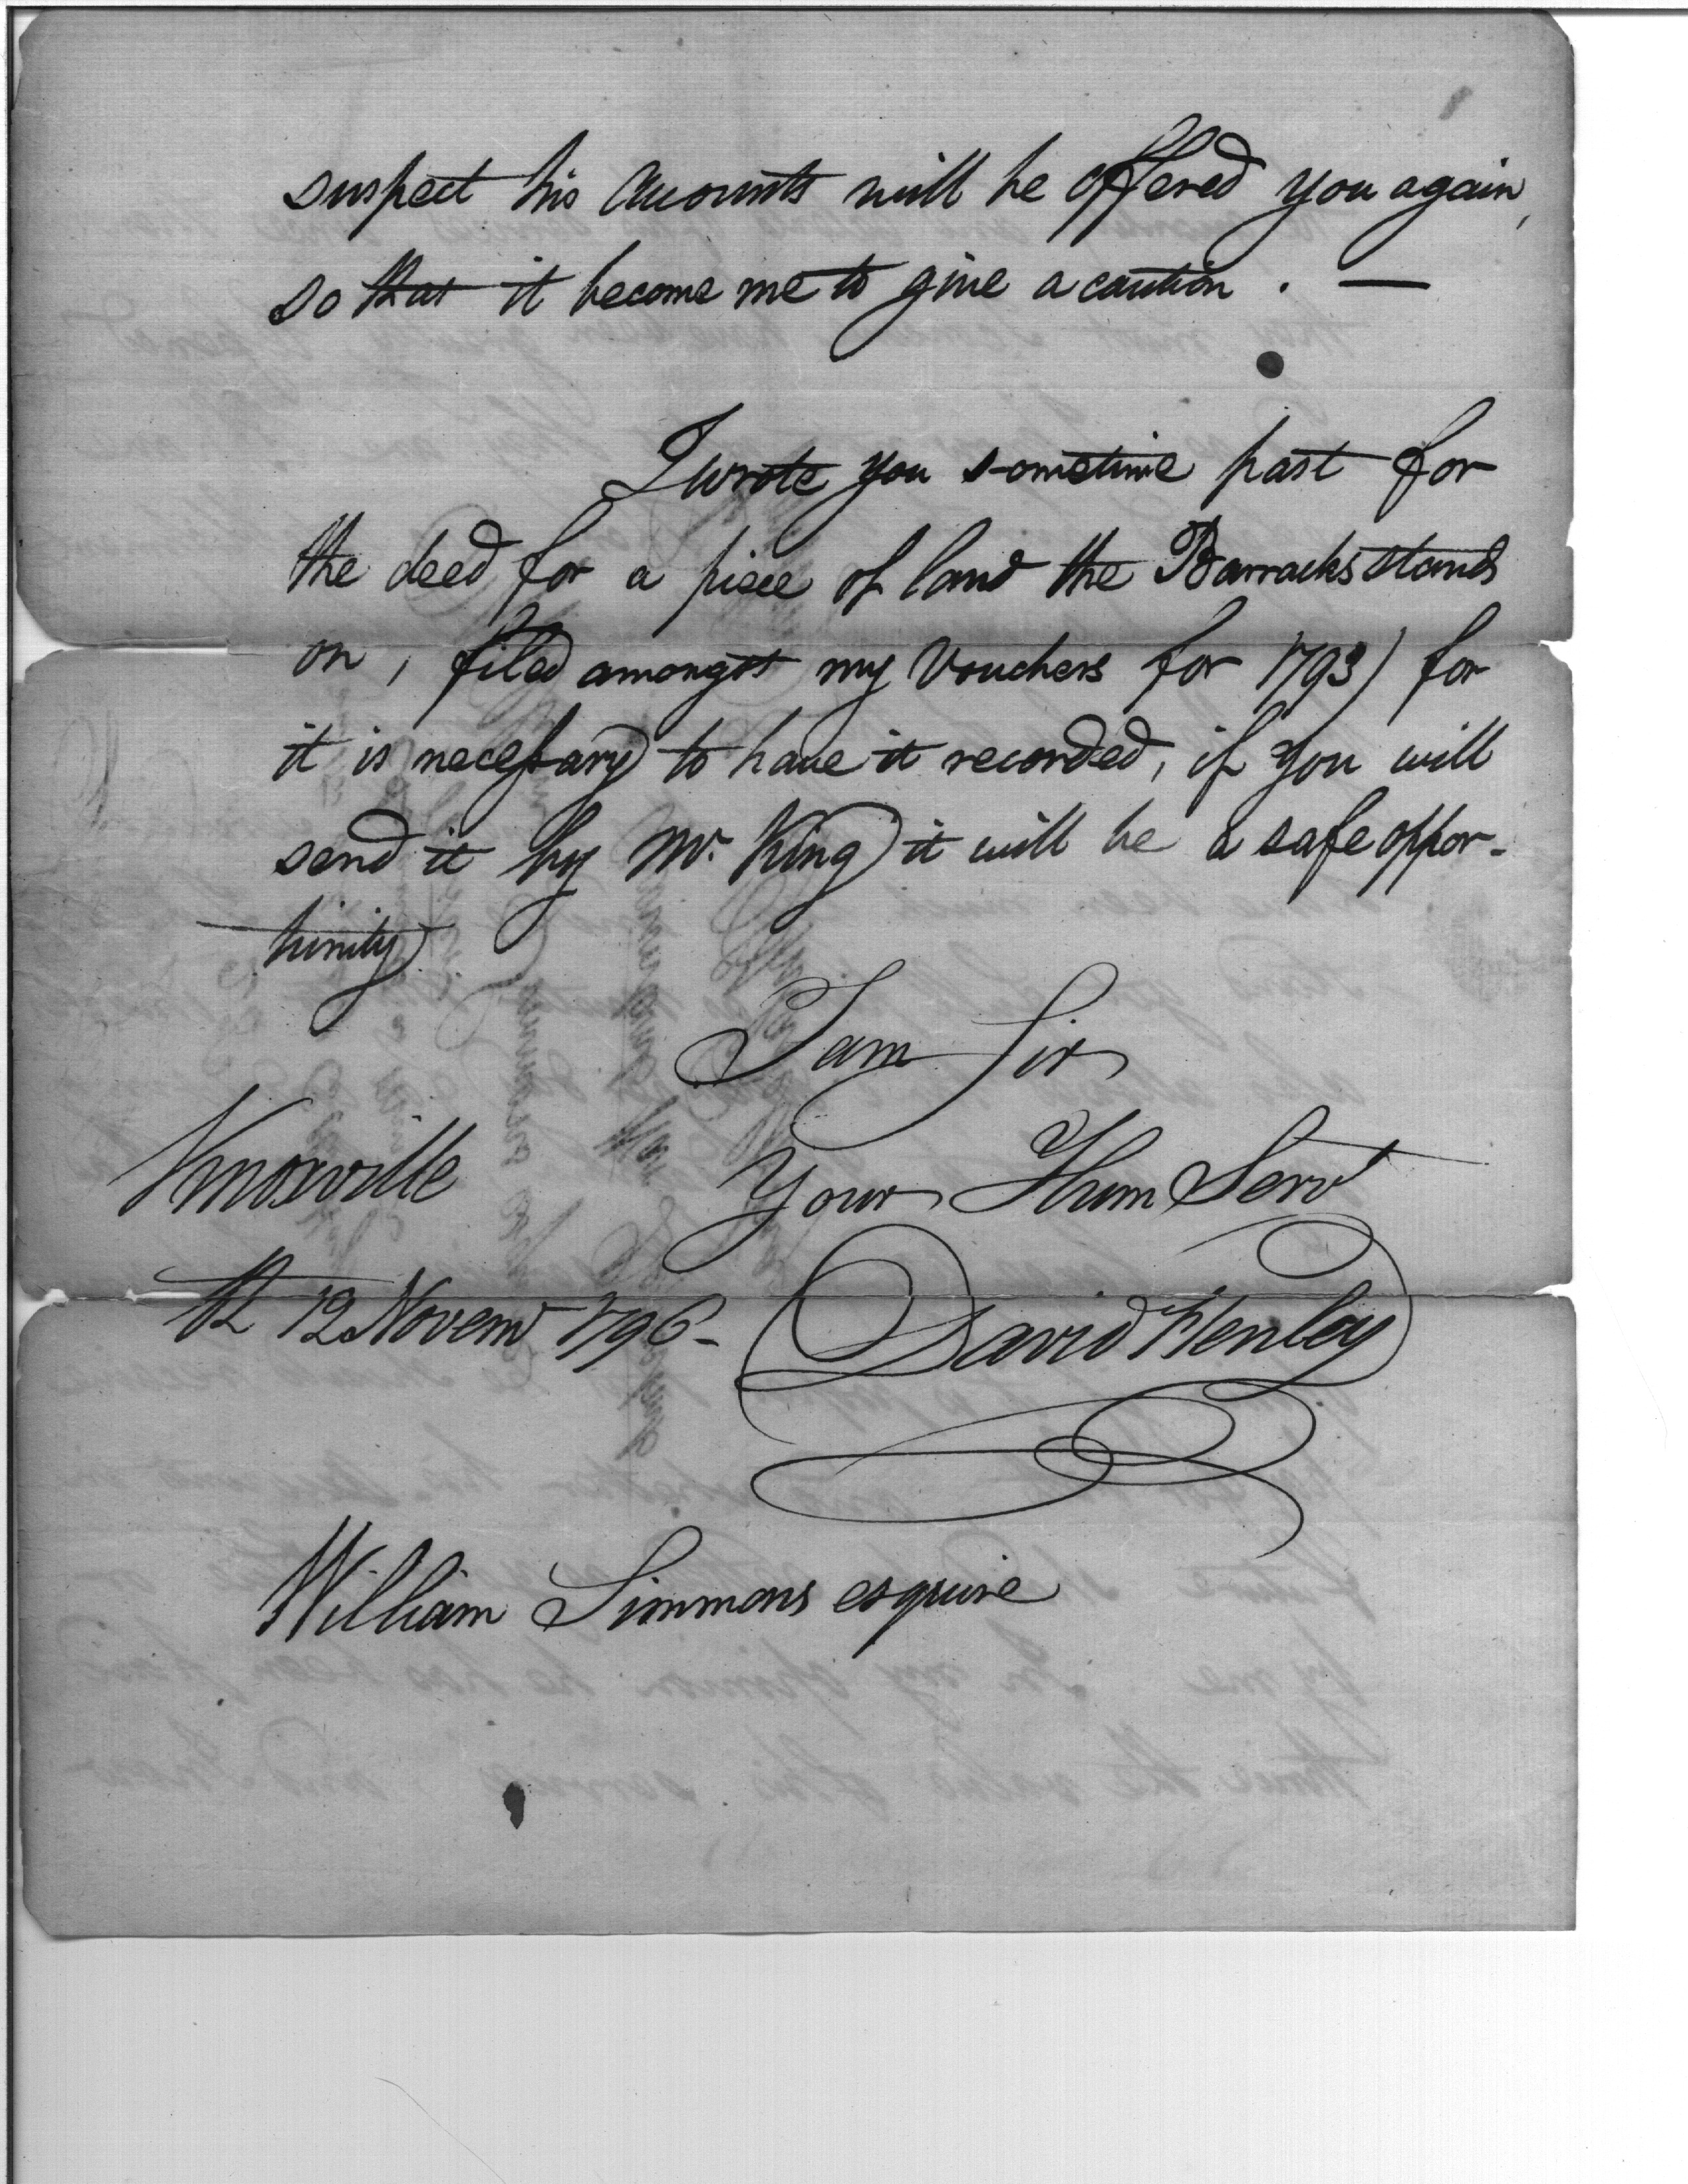 suspect his Accounts will be offered you again,
so that it become me to give a caution . —
I wrote you sometime past for
the deed for a piece of land the Barracks stands
on, filed amongst my Vouchers for 1793) for
it is necessary to have it recorded, if you will
send it by Mr. King it will be a safe oppor-
tunity
I am Sir
Your Hum Servt
Knoxville
David Henley
th 12 Novemr 1796-
William Simmons esquire